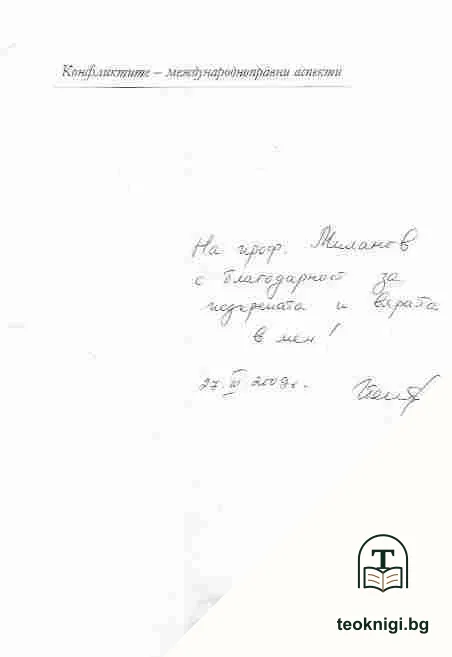 Конфликтите – международноправни аспекти
На проф. Миланов
с благодарност за
подкрепата и вярата
в мен!
27. III 2009г.
T
teoknigi.bg